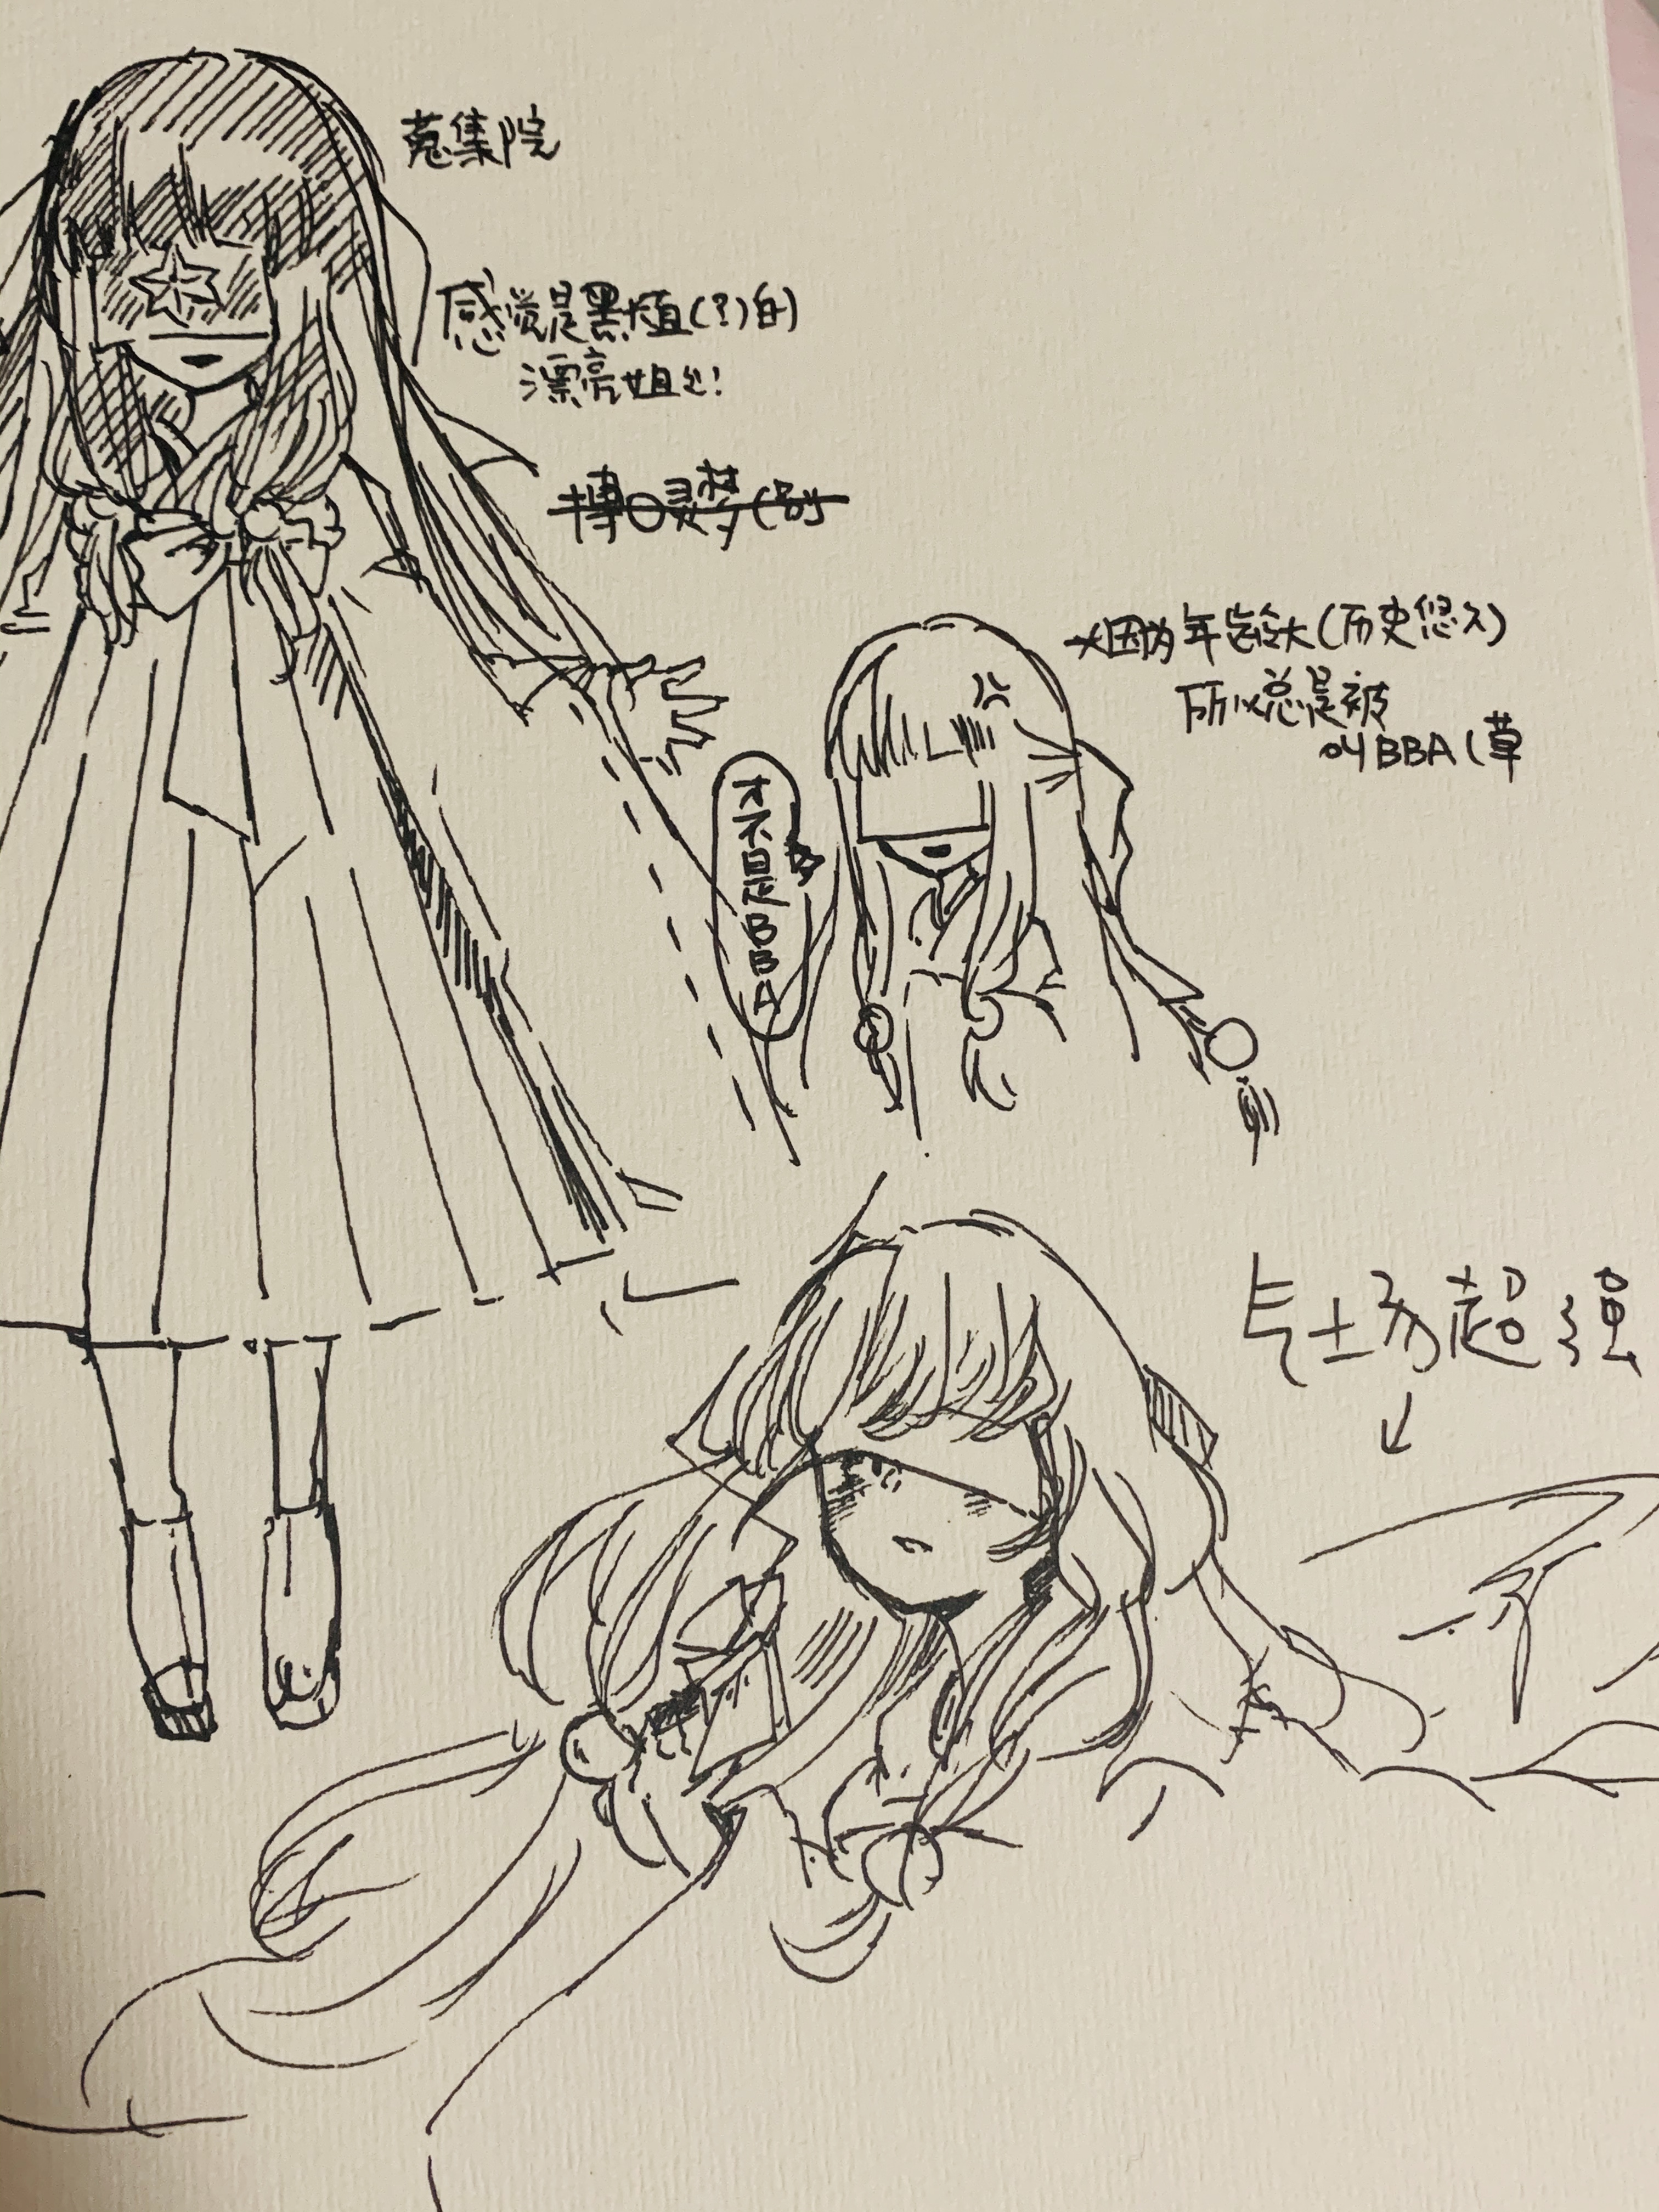 蒐集院
感觉是黑直(?)的
漂亮姐姐!
博〇灵梦(别
因为年龄大(历史悠久)
所以总是被
叫BBA(草
才不是BBA
气场超强